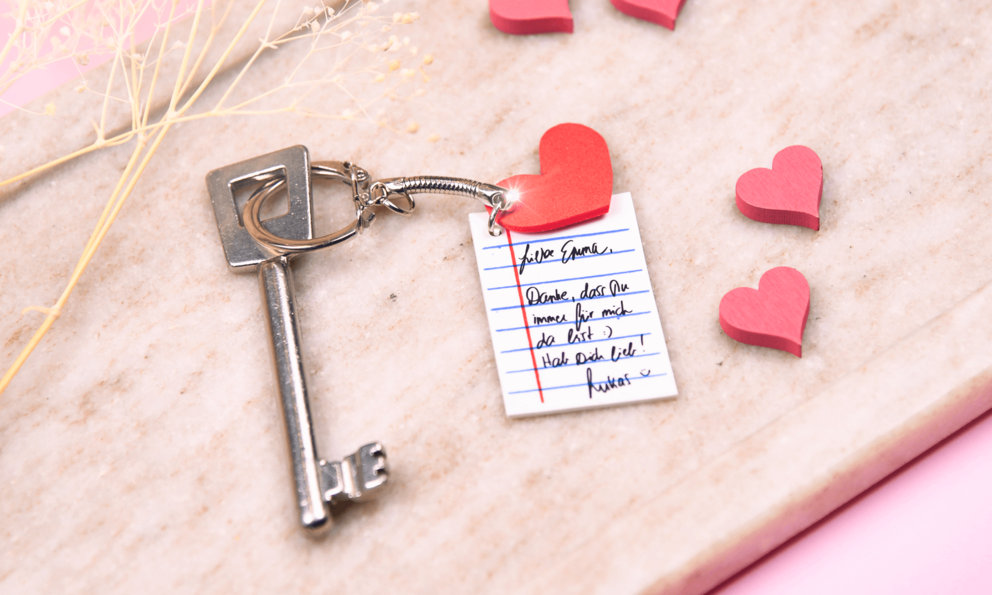 Liebe Emma,
Danke, dass Du
immer für mich
da bist :)
Hab Dich lieb!
Lukas